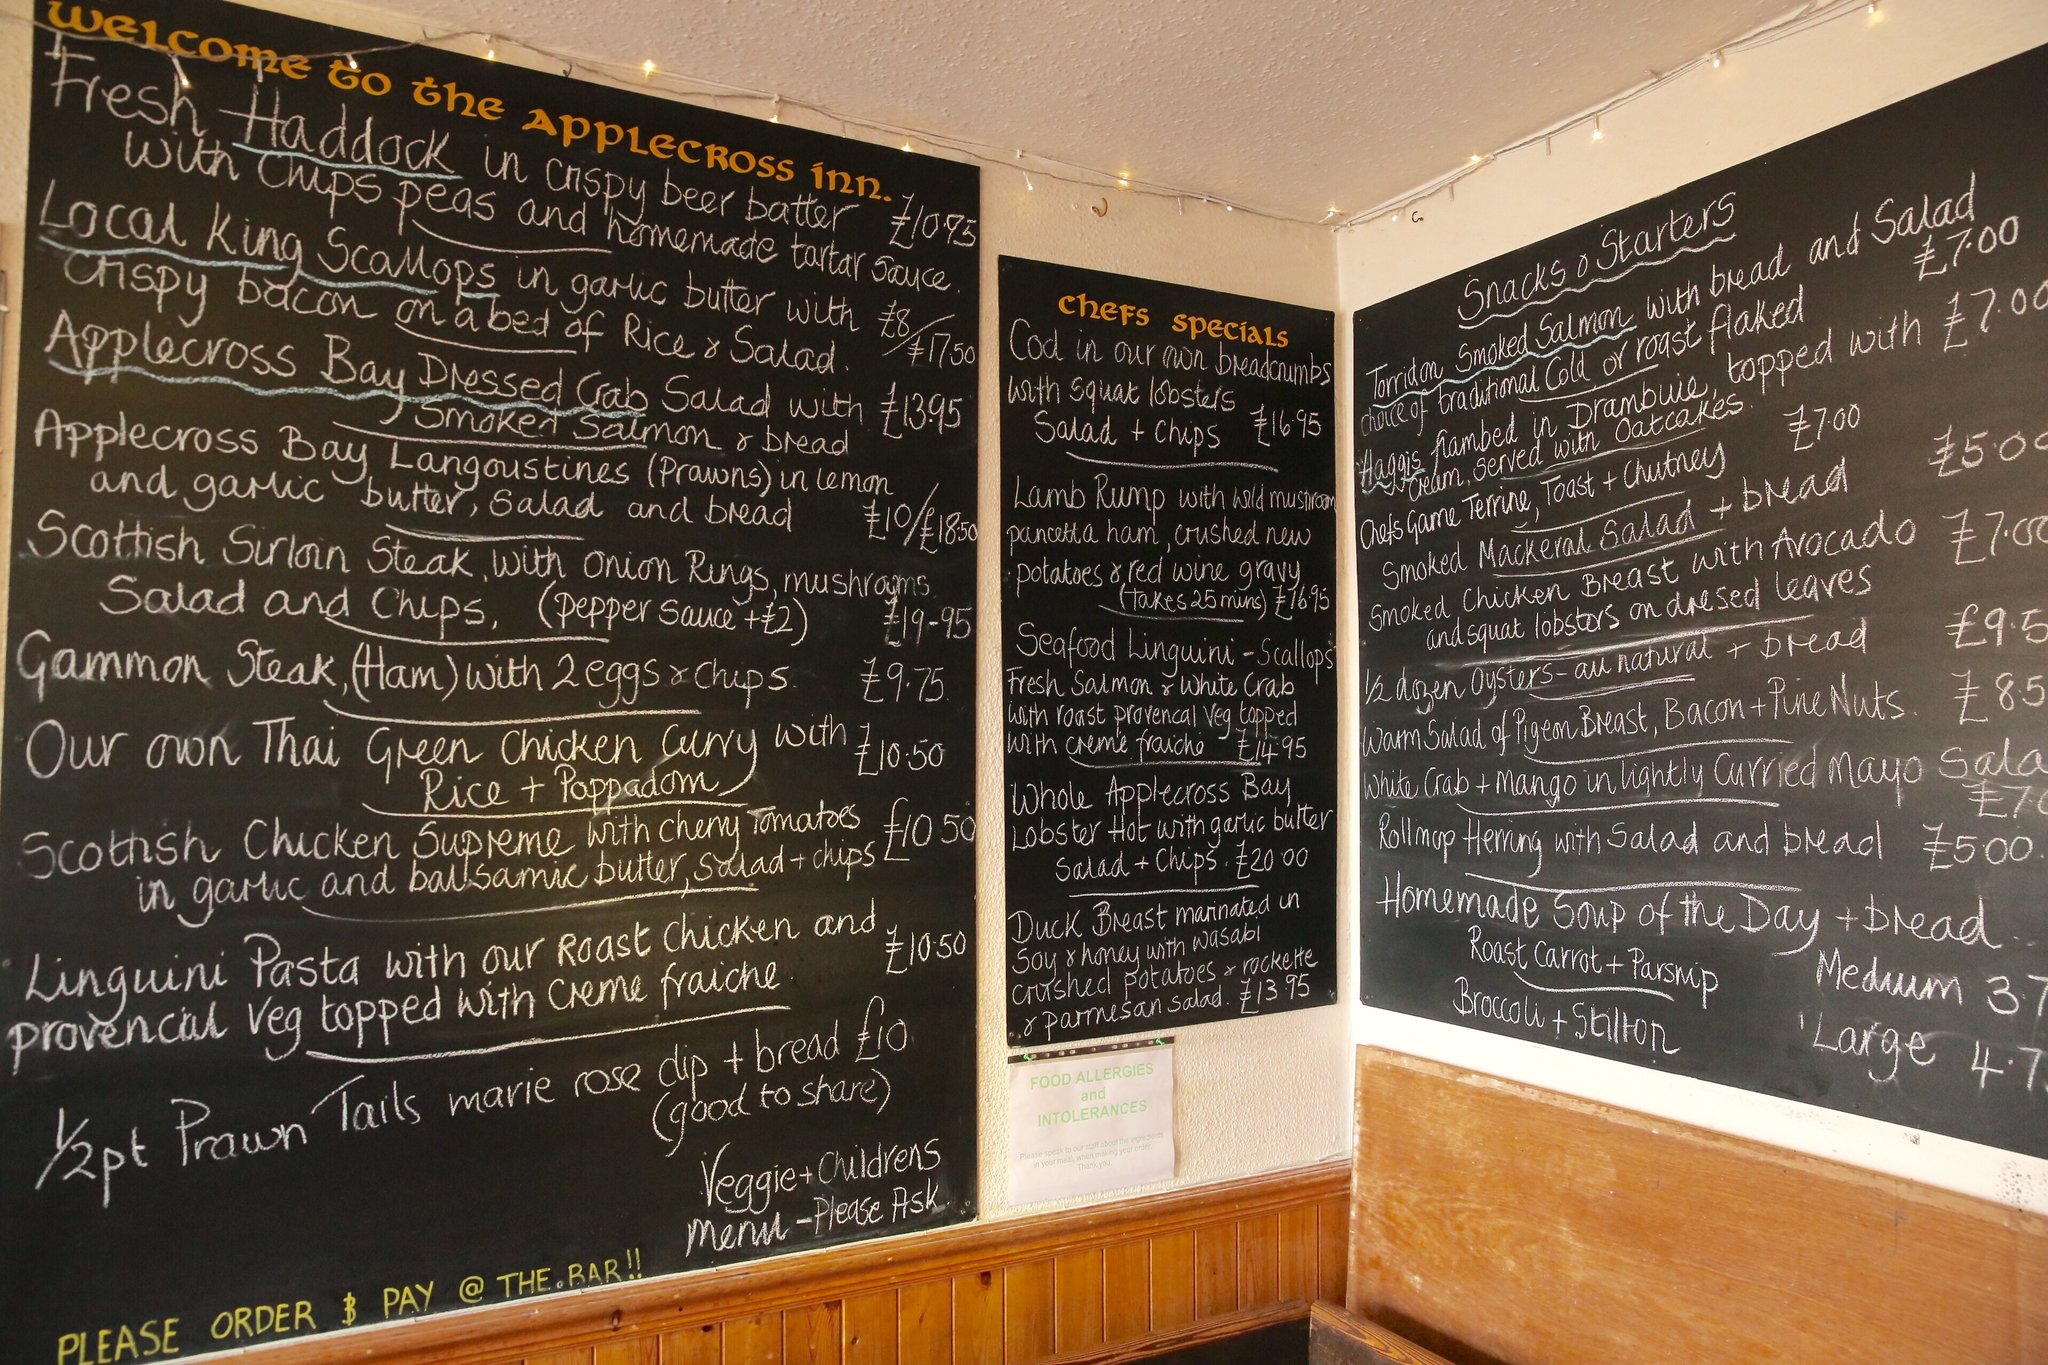 WELCOME TO THE APPLECROSS INN.
Fresh Haddock in crispy beer batter £10.95
with chips peas and homemade tartar sauce.
Local King Scallops in garlic butter with £8/£17.50
crispy bacon on a bed of Rice & Salad.
Applecross Bay Dressed Crab Salad with £13.95
Smoked Salmon & bread
Applecross Bay Langoustines (Prawns) in lemon
and garlic butter, Salad and bread £10/£18.50
Scottish Sirloin Steak, with Onion Rings, mushrooms
Salad and Chips, (pepper sauce + £2) £19-95
Gammon Steak, (Ham) with 2 eggs & chips. £9.75
Our own Thai Green Chicken Curry with £10.50
Rice + Poppadom
Scottish Chicken Supreme with cherry Tomatoes £10.50
in garlic and balsamic butter, salad + chips
Linguini Pasta with our Roast Chicken and £10.50
provencal veg topped with Creme fraiche
1/2pt Prawn Tails marie rose dip + bread £10.
(good to share)
Veggie + Childrens
Menu - Please Ask.
PLEASE ORDER & PAY @ THE BAR!!
CHEFS SPECIALS
Cod in our own breadcrumbs
with squat lobsters
Salad + Chips £16.95
Lamb Rump with wild mushroom
pancetta ham, crushed new
potatoes & red wine gravy
(takes 25 mins) £16.95
Seafood Linguini - Scallops
Fresh Salmon & White Crab
with roast provencal veg topped
with creme fraiche £14.95
Whole Applecross Bay
Lobster Hot with garlic butter
Salad + Chips. £20.00
Duck Breast marinated in
Soy & honey with wasabi
crushed potatoes & rockette
& parmesan salad. £13.95
FOOD ALLERGIES
and
INTOLERANCES
Please speak to our staff about the ingredients
in your meal, when making your order.
Thank you.
Snacks & Starters
Torridon Smoked Salmon with bread and Salad
choice of traditional Cold or roast flaked £7.00
Haggis flambed in Drambuie, topped with £7.00
cream, served with Oatcakes.
Chefs Game Terrine, Toast + Chutney £7.00
Smoked Mackeral Salad + bread £5.00
Smoked Chicken Breast with Avocado £7.00
and squat lobsters on dresed leaves
1/2 dozen Oysters - au natural + bread £9.5
Warm Salad of Pigeon Breast, Bacon + Pine Nuts. £8.5
White Crab + Mango in lightly Curried Mayo Sala
£7.0
Rollmop Herring with Salad and bread £5.00.
Homemade Soup of the Day + bread
Roast Carrot + Parsnip Medium 3.7
Broccoli + Stilton Large 4.7